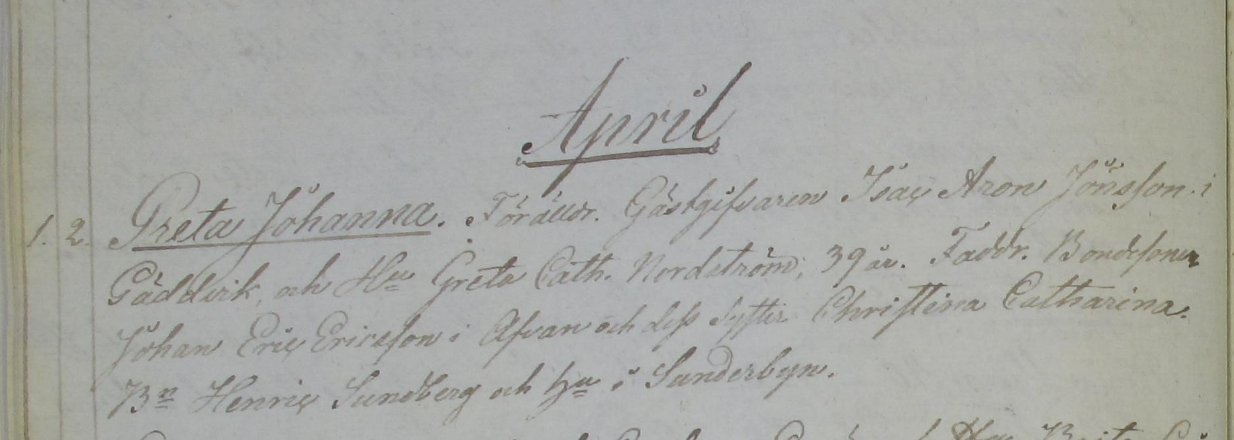 April
1. 2. Greta Johanna. Föräldr. Gästgifvaren Isaç Aron Jönsson i
Gäddvik, och Hu Greta Cath. Nordström, 39 år. Faddr. Bondesonen
Johan Eriç Ericsson i Afvan och dess Syster Christina Catharina.
Bn Henriç Sundberg och hu i Sunderbyn.